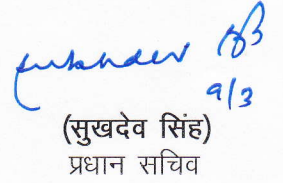 9/3
(सुखदेव सिंह)
प्रधान सचिव